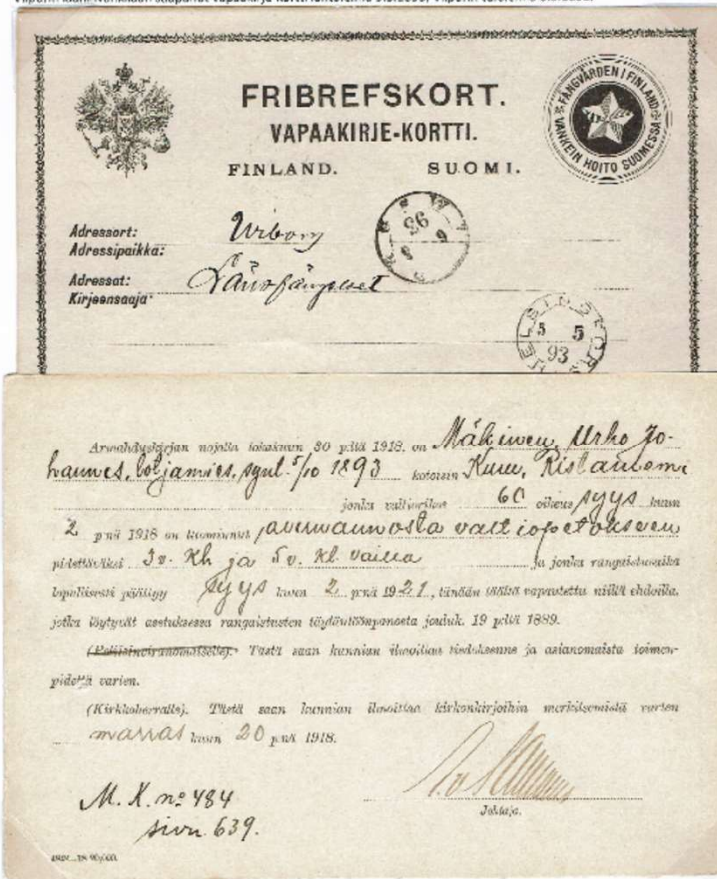 FRIBREFSKORT.
VAPAAKIRJE-KORTTI.
FINLAND. SUOMI.
FÅNGVÅRDEN I FINLAND
VANKEIN HOITO SUOMESSA
Adressort: Wiborg
Adressipaikka:
Adressat: Länsfängelset
Kirjeensaaja:
HELSINGFORS
5 5
93
Armahduskirjan nojalla lokakuun 30 p:ltä 1918. on Mäkinen, Urho Jo-
hannes, työmies, synt. 5/10 1893 kotoisin Kuru,
jonka valtiorikos 60 oikeus syys kuun
2 p:nä 1918 on tuominnut avunannosta valtiopetokseen
pidettäväksi 3 v. kh ja 5 v. kl. vailla ja jonka rangaistusaika
lopullisesti päättyy syys kuun 2 p:nä 1921, tänään täältä vapautettu niillä ehdoilla,
jotka löytyvät asetuksessa rangaistusten täytäntöönpanosta jouluk. 19 p:ltä 1889.
(Poliisiviranomaiselle). Tästä saan kunnian ilmoittaa tiedoksenne ja asianomaista toimen-
pidettä varten.
(Kirkkoherralle). Tästä saan kunnian ilmoittaa kirkonkirjoihin merkitsemistä varten
marras kuun 20 p:nä 1918.
M. K. nº 484
sivu 639.
Johtaja.